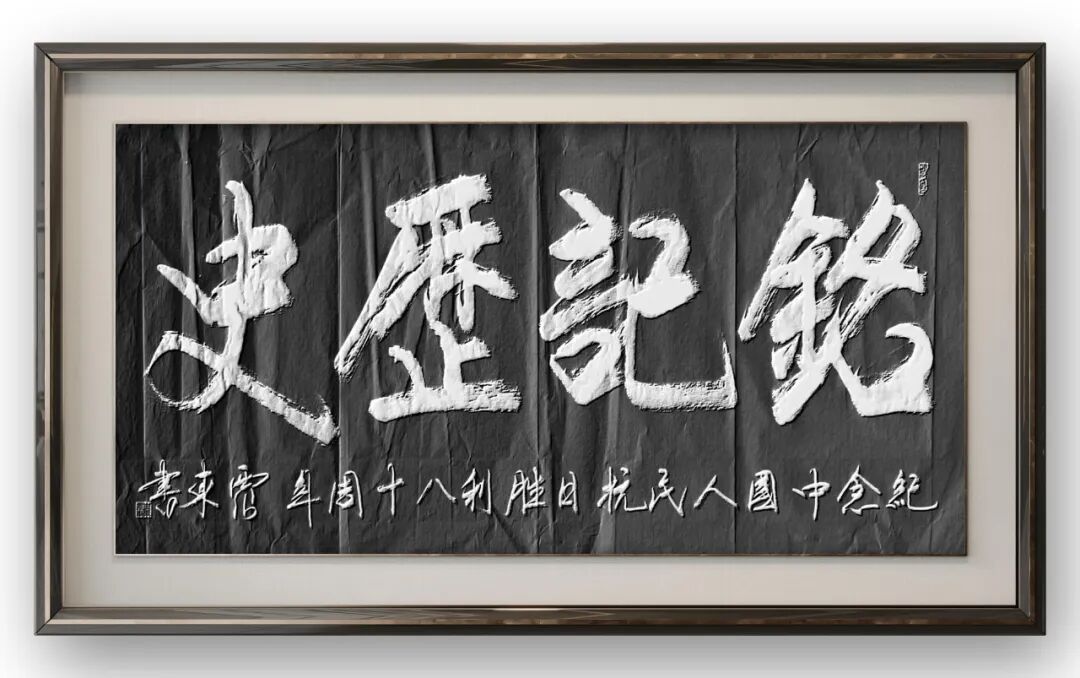 銘記歷史
紀念中國人民抗日胜利八十周年 書